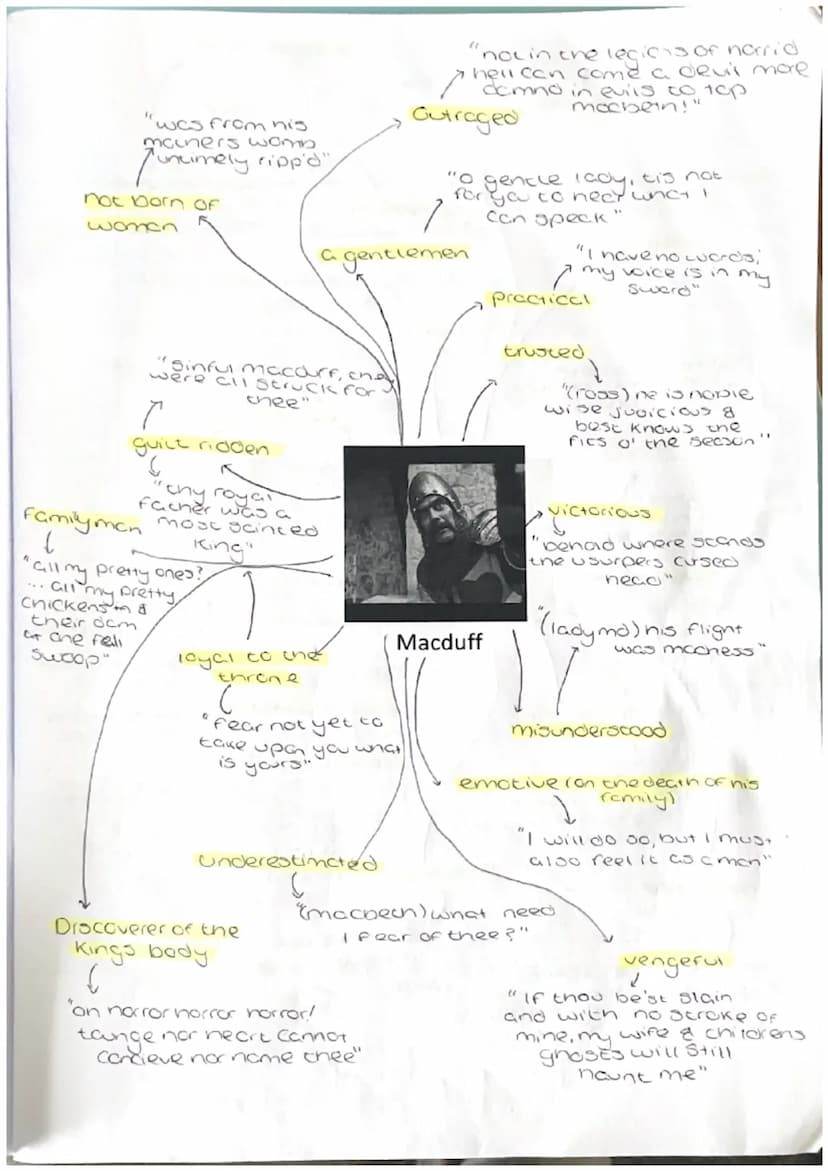 "not in the legions of horrid
hell can come a devil more
damnd in evils to top
macbeth!"
Outraged
"was from his
mothers womb
untimely ripp'd"
not born of
women
"O gentle lady, tis not
for you to hear what I
can speak"
a gentlemen
"I have no words,
my voice is in my
sword"
practical
trusted
"(ross) he is noble
wise judicious &
best knows the
fits o' the season"
"sinful macduff, they
were all struck for
thee"
guilt ridden
"thy royal
father was a
most sainted
king"
family man
"all my pretty ones?
... all my pretty
chickens &
their dam
at one fell
swoop"
victorious
"behold where stands
the usurpers cursed
head"
Macduff
(lady md) his flight
was madness"
misunderstood
loyal to the
throne
"fear not yet to
take upon you what
is yours"
emotive (on the death of his
family)
"I will do so, but I must
also feel it as a man"
underestimated
"(macbeth) what need
I fear of thee?"
Discoverer of the
Kings body
"oh horror horror horror!
tounge nor heart cannot
concieve nor name thee"
vengeful
"If thou be'st slain
and with no stroke of
mine, my wife & childrens
ghosts will still
haunt me"